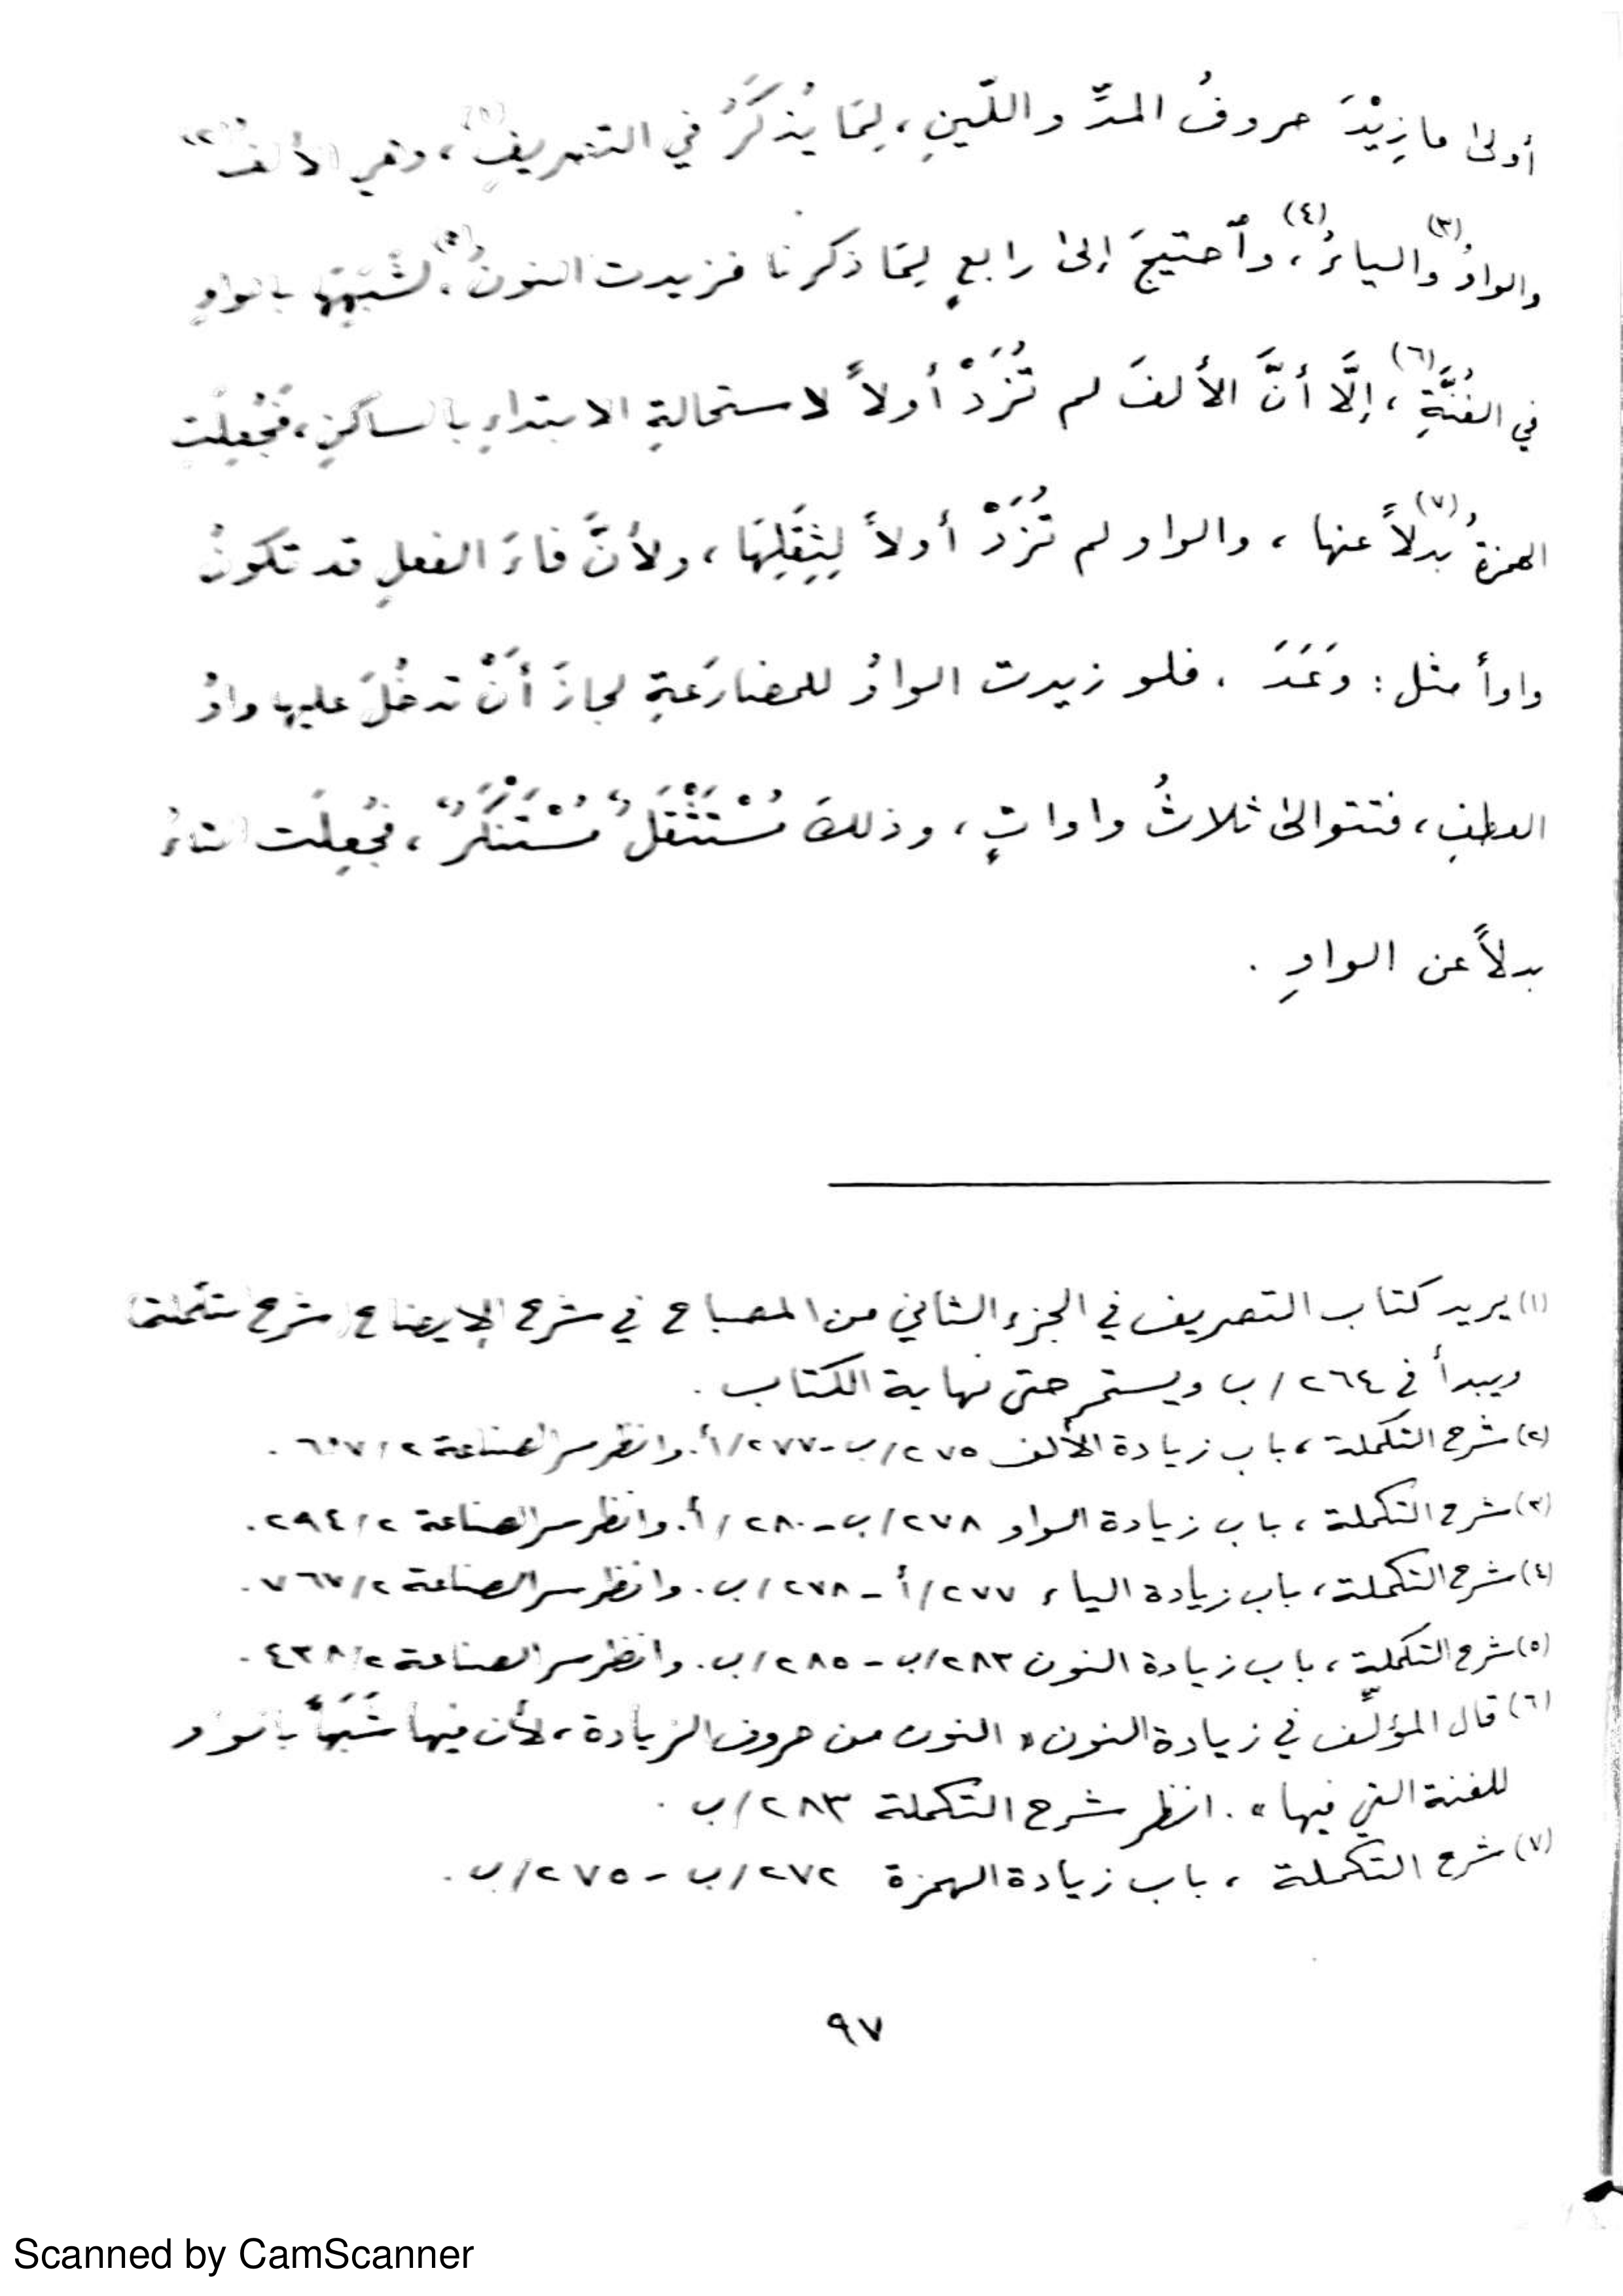 أولىٰ ما زِيْدَ حروفُ المدِّ واللّينِ، لِمَا يُذكَرُ في التصريفِ(١)، وهي الألفُ(٢)
والواوُ(٣) والياءُ(٤)، وٱحتيجَ إلىٰ رابعٍ لِمَا ذكرنا فزيدت النونُ(٥). لشَبَهِهَا بالواوِ
في الغُنَّةِ(٦)، إلَّا أنَّ الألفَ لم تُزَدْ أولاً لاستحالةِ الابتداءِ بالساكنِ، فجُعِلَتِ
الهمزةُ(٧) بدلاً عنها، والواو لم تُزَدْ أولاً لِثِقَلِهَا، ولأنَّ فاءَ الفعلِ قد تكونُ
واواً مثل: وَعَدَ. فلو زيدت الواوُ للمضارَعةِ لجازَ أَنْ تدخُلَ عليها واوُ
العطفِ، فتتوالىٰ ثلاثُ واواتٍ، وذلكَ مُسْتَثْقَلٌ مُسْتَنْكَرٌ، فجُعِلَت التاءُ
بدلاً عن الواوِ.
(١) يريد كتاب التصريف في الجزء الثاني من المصباح في شرح الإيضاح (شرح تكملة)
ويبدأ في ٢٦٤/ب ويستمر حتى نهاية الكتاب.
(٢) شرح التكملة، باب زيادة الألف ٢٧٥/ب-٢٧٧/أ. وانظر سر الصناعة ٦٨٧/٢.
(٣) شرح التكملة، باب زيادة الواو ٢٧٨/ب-٢٨٠/أ. وانظر سر الصناعة ٢٩٤/٢.
(٤) شرح التكملة، باب زيادة الياء ٢٧٧/أ-٢٧٨/ب. وانظر سر الصناعة ٧٦٧/٢.
(٥) شرح التكملة، باب زيادة النون ٢٨٣/ب-٢٨٥/ب. وانظر سر الصناعة ٤٣٨/٢.
(٦) قال المؤلِّف في زيادة النون «النون من حروف الزيادة، لأن فيها شَبَهَاً بالواو
للغنة التي فيها». انظر شرح التكملة ٢٨٣/ب.
(٧) شرح التكملة، باب زيادة الهمزة ٢٧٢/ب-٢٧٥/ب.
٩٧
Scanned by CamScanner